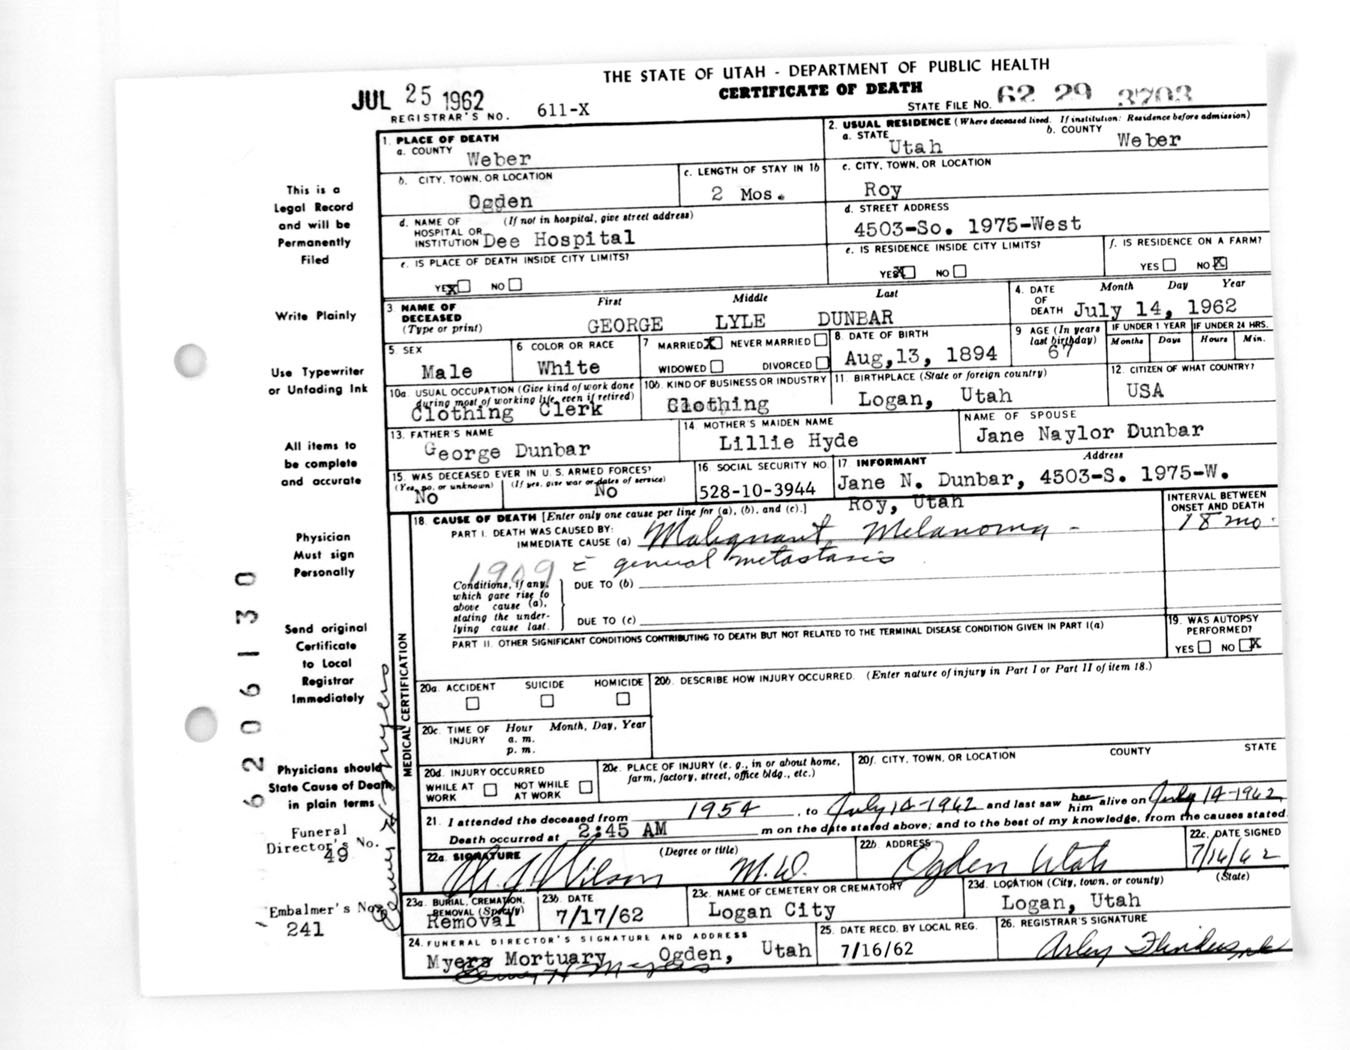 THE STATE OF UTAH - DEPARTMENT OF PUBLIC HEALTH
CERTIFICATE OF DEATH
JUL 25 1962
REGISTRAR'S NO. 611-X
STATE FILE NO. 62 29 3703
1. PLACE OF DEATH
a. COUNTY Weber
2. USUAL RESIDENCE (Where deceased lived. If institution: Residence before admission)
a. STATE Utah b. COUNTY Weber
b. CITY, TOWN, OR LOCATION Ogden
c. LENGTH OF STAY IN 1b 2 Mos.
c. CITY, TOWN, OR LOCATION Roy
d. NAME OF HOSPITAL OR INSTITUTION (If not in hospital, give street address) Dee Hospital
d. STREET ADDRESS 4503-So. 1975-West
e. IS PLACE OF DEATH INSIDE CITY LIMITS?
YES X NO
e. IS RESIDENCE INSIDE CITY LIMITS?
YES X NO
f. IS RESIDENCE ON A FARM?
YES NO X
3 NAME OF DECEASED (Type or print)
First Middle Last
GEORGE LYLE DUNBAR
4. DATE OF DEATH Month Day Year
July 14, 1962
5. SEX Male
6 COLOR OR RACE White
7 MARRIED X NEVER MARRIED
WIDOWED DIVORCED
8 DATE OF BIRTH Aug,13, 1894
9 AGE (In years last birthday) 67
IF UNDER 1 YEAR Months Days
IF UNDER 24 HRS. Hours Min.
10a. USUAL OCCUPATION (Give kind of work done during most of working life, even if retired) Clothing Clerk
10b. KIND OF BUSINESS OR INDUSTRY Clothing
11. BIRTHPLACE (State or foreign country) Logan, Utah
12. CITIZEN OF WHAT COUNTRY? USA
13. FATHER'S NAME George Dunbar
14. MOTHER'S MAIDEN NAME Lillie Hyde
NAME OF SPOUSE Jane Naylor Dunbar
15. WAS DECEASED EVER IN U. S. ARMED FORCES?
(Yes, no, or unknown) No (If yes, give war or dates of service) No
16. SOCIAL SECURITY NO. 528-10-3944
17. INFORMANT Address
Jane N. Dunbar, 4503-S. 1975-W.
Roy, Utah
18. CAUSE OF DEATH [Enter only one cause per line for (a), (b), and (c).]
INTERVAL BETWEEN ONSET AND DEATH
PART I. DEATH WAS CAUSED BY:
IMMEDIATE CAUSE (a) Malignant Melanoma - 18 mo.
1909 c̄ general metastasis
Conditions, if any, which gave rise to above cause (a), stating the underlying cause last.
DUE TO (b)
DUE TO (c)
PART II. OTHER SIGNIFICANT CONDITIONS CONTRIBUTING TO DEATH BUT NOT RELATED TO THE TERMINAL DISEASE CONDITION GIVEN IN PART I(a)
19. WAS AUTOPSY PERFORMED?
YES NO X
20a. ACCIDENT SUICIDE HOMICIDE
20b. DESCRIBE HOW INJURY OCCURRED. (Enter nature of injury in Part I or Part II of item 18.)
20c. TIME OF INJURY Hour a. m. p. m. Month, Day, Year
20d. INJURY OCCURRED
WHILE AT WORK NOT WHILE AT WORK
20e. PLACE OF INJURY (e. g., in or about home, farm, factory, street, office bldg., etc.)
20f. CITY, TOWN, OR LOCATION COUNTY STATE
21. I attended the deceased from 1954, to July 14-1962 and last saw her him alive on July 14-1962
Death occurred at 2:45 AM m on the date stated above; and to the best of my knowledge, from the causes stated.
22a. SIGNATURE (Degree or title)
Wilson M.D.
22b. ADDRESS Ogden Utah
22c. DATE SIGNED 7/16/62
23a. BURIAL, CREMATION, REMOVAL (Specify) Removal
23b. DATE 7/17/62
23c. NAME OF CEMETERY OR CREMATORY Logan City
23d. LOCATION (City, town, or county) (State)
Logan, Utah
24. FUNERAL DIRECTOR'S SIGNATURE AND ADDRESS
Myers Mortuary Ogden, Utah
Myers
25. DATE RECD. BY LOCAL REG. 7/16/62
26. REGISTRAR'S SIGNATURE
MEDICAL CERTIFICATION
This is a
Legal Record
and will be
Permanently
Filed
Write Plainly
Use Typewriter
or Unfading Ink
All items to
be complete
and accurate
Physician
Must sign
Personally
Send original
Certificate
to Local
Registrar
Immediately
Physicians should
State Cause of Death
in plain terms
Funeral
Director's No.
49
Embalmer's No.
241
6206130
Myers